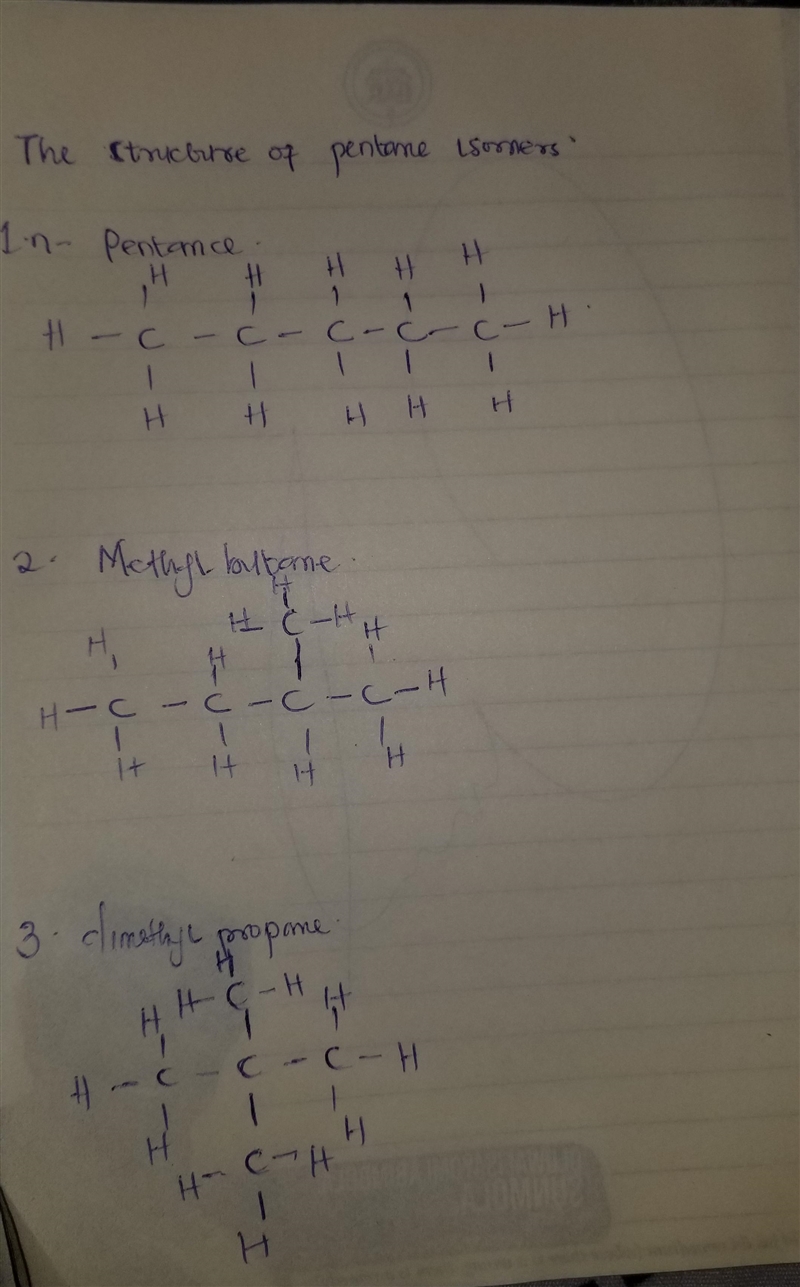 The structure of pentane isomers.
1. n- Pentance.
H H H H H
H - C - C - C - C - C - H
H H H H H
2. Methyl butane.
H
H - C - H
H H H
H - C - C - C - C - H
H H H H
3. dimethyl propane.
H
H - C - H
H H
H - C - C - C - H
H H
H - C - H
H